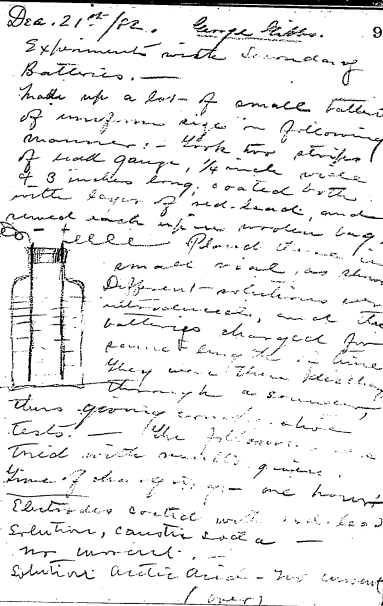 Dec. 21st/82. George Gibbs. 9
Experiments with Secondary
Batteries. —
Made up a lot of small batteries
of uniform size in following
manner: - Took two strips
of lead gauge, 1/4 inch wide
& 3 inches long, coated both
with layer of red-lead, and
sewed each up in woolen bag
Placed these in
small vial, as shown
Different solutions were
introduced, and the
batteries charged for
same length of time
they were then
through a sounder,
thus giving
tests. — The following were
tried with results given.
Time of charging — one hour
Electrodes coated with red-lead
Solution, caustic soda —
no current. —
Solution Acetic Acid - no current
(over)